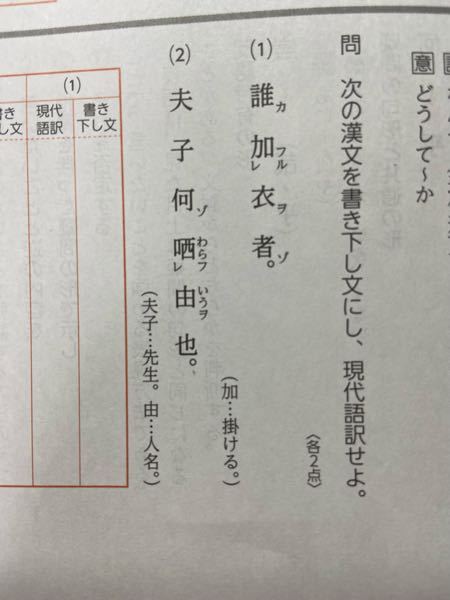 意 どうして〜か
問 次の漢文を書き下し文にし、現代語訳せよ。
〈各2点〉
(1) 誰カ加フルレ衣ヲ者ゾ。
(加…掛ける。)
(2) 夫子何ゾ哂わらフレ由いうヲ也。
(夫子…先生。由…人名。)
(1)
書き下し文
現代語訳
書き下し文